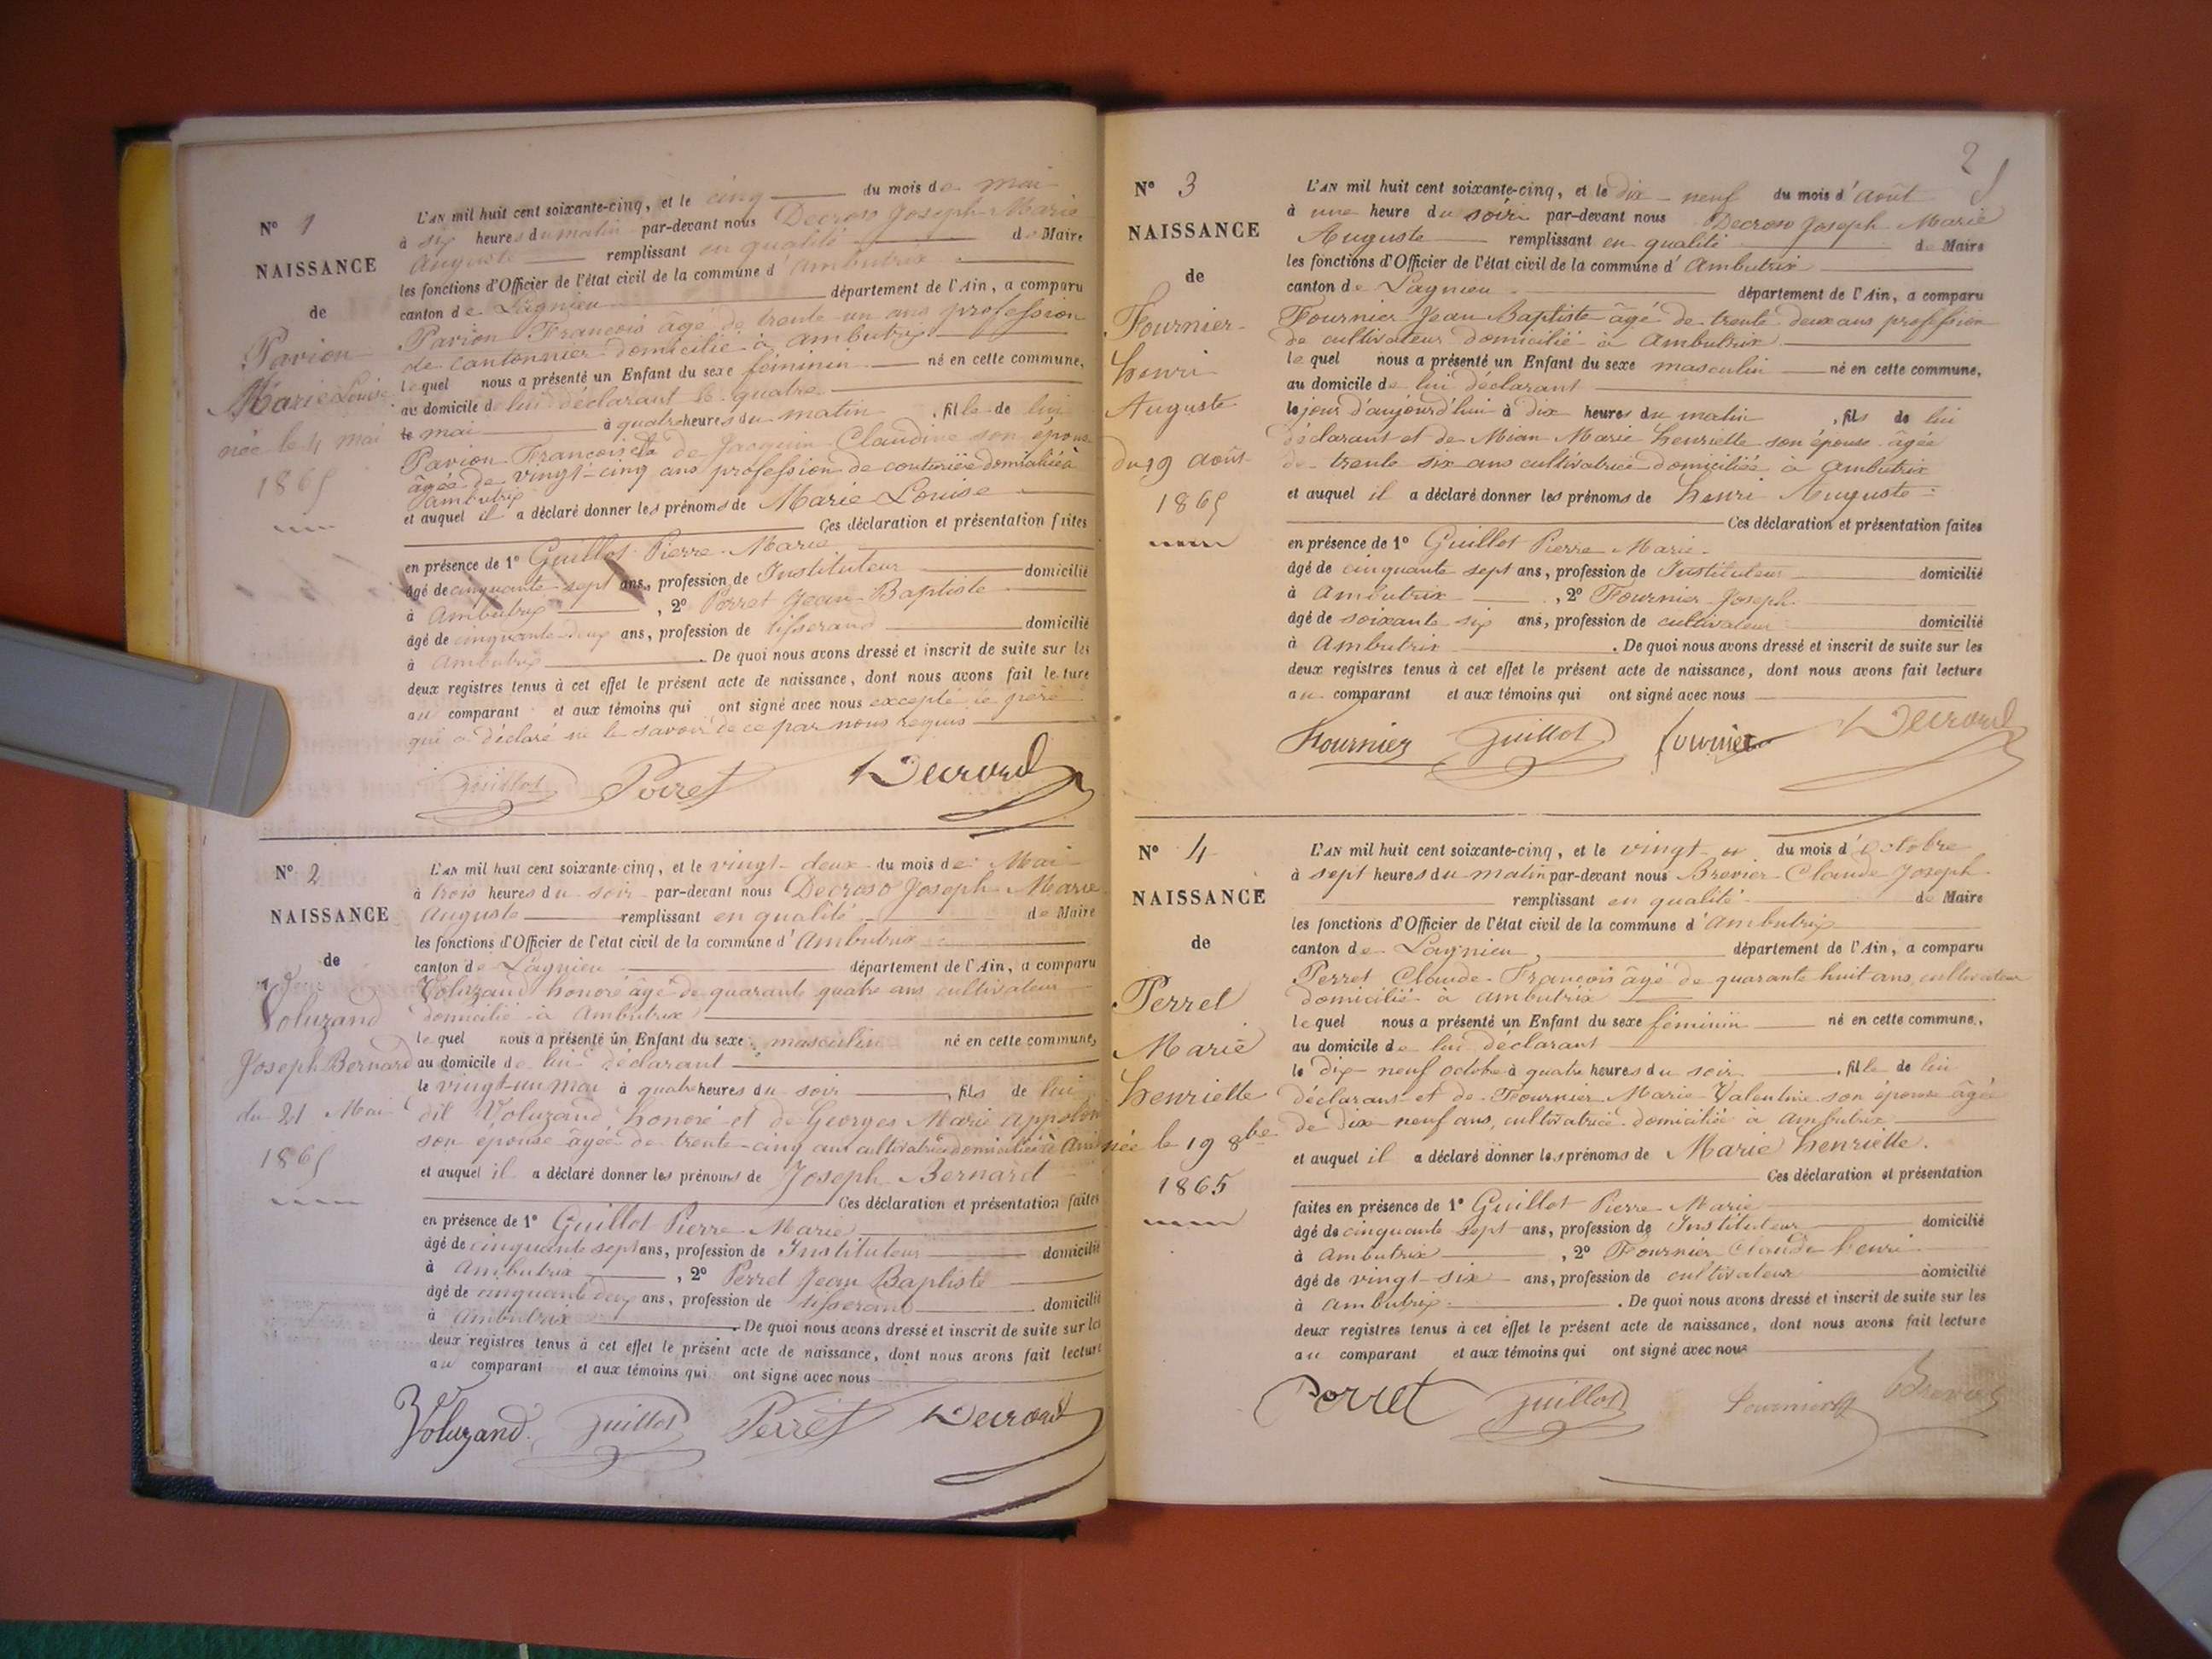 N° 1
NAISSANCE
de
Pavion
Marie Louise
née le 4 mai
1865
L'AN mil huit cent soixante-cinq, et le cinq du mois de mai
à six heures du matin par-devant nous Decroso Joseph Marie
Auguste remplissant en qualité de Maire
les fonctions d'Officier de l'état civil de la commune d'Ambutrix
canton de Lagnieu département de l'Ain, a comparu
Pavion François âgé de trente un ans profession
de cantonnier domicilié à Ambutrix
lequel nous a présenté un Enfant du sexe féminin né en cette commune,
au domicile de lui déclarant le quatre
mai à quatre heures du matin, fille de lui
Pavion François et de Jacquin Claudine son épouse
âgée de vingt-cinq ans profession de couturière domiciliée à
Ambutrix
et auquel il a déclaré donner les prénoms de Marie Louise
Ces déclaration et présentation faites
en présence de 1° Guillot Pierre Marie
âgé de cinquante sept ans, profession de Instituteur domicilié
à Ambutrix, 2° Perret Jean Baptiste
âgé de cinquante-deux ans, profession de tisserand domicilié
à Ambutrix. De quoi nous avons dressé et inscrit de suite sur les
deux registres tenus à cet effet le présent acte de naissance, dont nous avons fait lecture
au comparant et aux témoins qui ont signé avec nous excepté le père
qui a déclaré ne le savoir de ce par nous requis
Guillot Perret Decroso
N° 2
NAISSANCE
de
Voluzand
Joseph Bernard
du 21 Mai
1865
L'AN mil huit cent soixante-cinq, et le vingt-deux du mois de Mai
à trois heures du soir par-devant nous Decroso Joseph Marie
Auguste remplissant en qualité de Maire
les fonctions d'Officier de l'état civil de la commune d'Ambutrix
canton de Lagnieu département de l'Ain, a comparu
Voluzand honoré âgé de quarante quatre ans cultivateur
domicilié à Ambutrix
lequel nous a présenté un Enfant du sexe masculin né en cette commune,
au domicile de lui déclarant
le vingt-un mai à quatre heures du soir, fils de lui
dit Voluzand honoré et de Georges Marie
son épouse âgée de trente-cinq ans cultivatrice domiciliée à
et auquel il a déclaré donner les prénoms de Joseph Bernard
Ces déclaration et présentation faites
en présence de 1° Guillot Pierre Marie
âgé de cinquante sept ans, profession de Instituteur domicilié
à Ambutrix, 2° Perret Jean Baptiste
âgé de cinquante deux ans, profession de tisserand domicilié
à Ambutrix. De quoi nous avons dressé et inscrit de suite sur les
deux registres tenus à cet effet le présent acte de naissance, dont nous avons fait lecture
au comparant et aux témoins qui ont signé avec nous
Voluzand Guillot Perret Decroso
2
N° 3
NAISSANCE
de
Fournier
henri
Auguste
du 19 août
1865
L'AN mil huit cent soixante-cinq, et le dix-neuf du mois d'août
à une heure du soir par-devant nous Decroso Joseph Marie
Auguste remplissant en qualité de Maire
les fonctions d'Officier de l'état civil de la commune d'Ambutrix
canton de Lagnieu département de l'Ain, a comparu
Fournier Jean Baptiste âgé de trente deux ans profession
de cultivateur domicilié à Ambutrix
lequel nous a présenté un Enfant du sexe masculin né en cette commune,
au domicile de lui déclarant
le jour d'aujourd'hui à dix heures du matin, fils de lui
déclarant et de Mian Marie henriette son épouse âgée
de trente six ans cultivatrice domiciliée à Ambutrix
et auquel il a déclaré donner les prénoms de henri Auguste
Ces déclaration et présentation faites
en présence de 1° Guillot Pierre Marie
âgé de cinquante sept ans, profession de Instituteur domicilié
à Ambutrix, 2° Fournier Joseph
âgé de soixante six ans, profession de cultivateur domicilié
à Ambutrix. De quoi nous avons dressé et inscrit de suite sur les
deux registres tenus à cet effet le présent acte de naissance, dont nous avons fait lecture
au comparant et aux témoins qui ont signé avec nous
Fournier Guillot Fournier Decroso
N° 4
NAISSANCE
de
Perret
Marie
henriette
née le 19 8bre
1865
L'AN mil huit cent soixante-cinq, et le vingt du mois d'octobre
à sept heures du matin par-devant nous Brevier Claude Joseph
remplissant en qualité de Maire
les fonctions d'Officier de l'état civil de la commune d'Ambutrix
canton de Lagnieu département de l'Ain, a comparu
Perret Claude-François âgé de quarante huit ans, cultivateur
domicilié à Ambutrix
lequel nous a présenté un Enfant du sexe féminin né en cette commune,
au domicile de lui déclarant
le dix-neuf octobre à quatre heures du soir, fille de lui
déclarant et de Fournier Marie Valentine son épouse âgée
de dix neuf ans, cultivatrice domiciliée à Ambutrix
et auquel il a déclaré donner les prénoms de Marie henriette.
Ces déclaration et présentation
faites en présence de 1° Guillot Pierre Marie
âgé de cinquante sept ans, profession de Instituteur domicilié
à Ambutrix, 2° Fournier Claude henri
âgé de vingt-six ans, profession de cultivateur domicilié
à Ambutrix. De quoi nous avons dressé et inscrit de suite sur les
deux registres tenus à cet effet le présent acte de naissance, dont nous avons fait lecture
au comparant et aux témoins qui ont signé avec nous
Perret Guillot Fournier Brevier